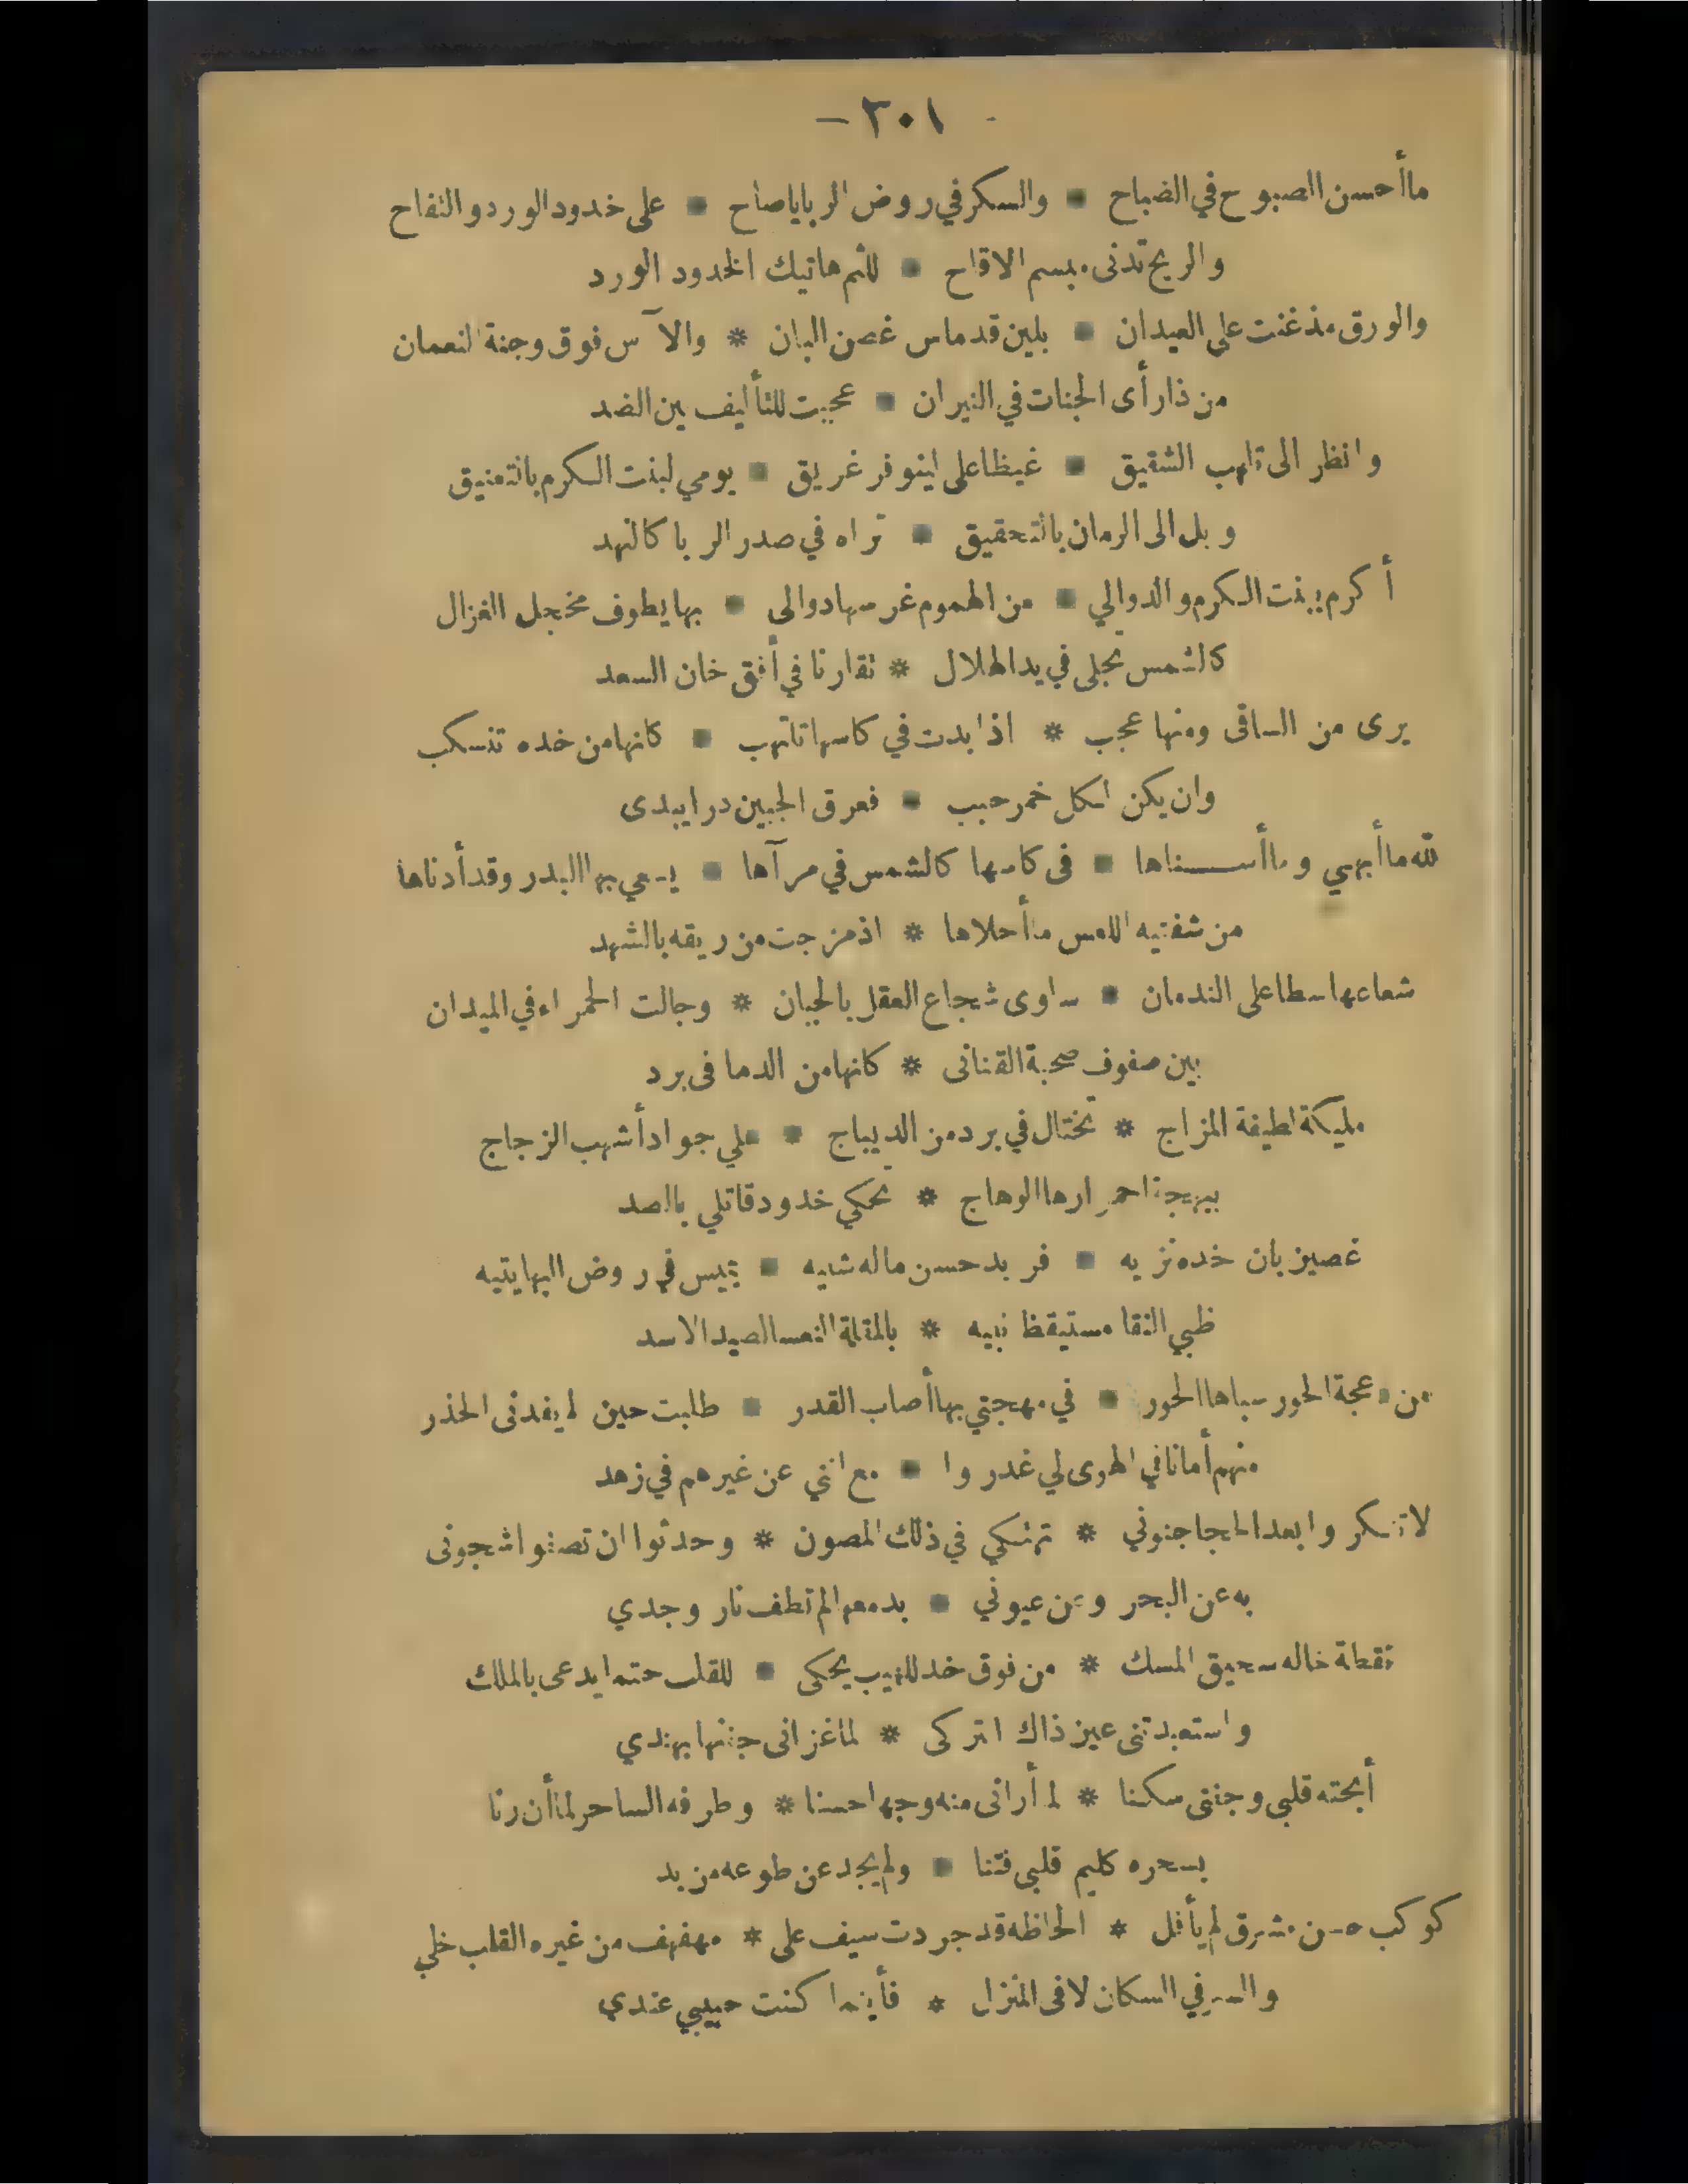 - ٣٠١ -
ماأحسن الصبوح في الضباح * والسكر في روض الربا ياصاح * على خدود الورد والتفاح
والريح تدنى مبسم الاقاح * للثم هاتيك الخدود الورد
والورق مذغنت على العيدان * بلين قد ماس غصن البان * والآس فوق وجنة النعمان
من ذا رأى الجنات في النيران * عجبت للتأليف بين الضد
وانظر الى تلهب الشقيق * غيظا على لينوفر غريق * يومي لبنت الكرم بالتعنيق
وبل الى الرمان بالتحقيق * تراه في صدر الربا كالنهد
أكرم ببنت الكرم والدوالي * من الهموم غرسها دوالى * بها يطوف مخجل الغزال
كالشمس تجلى في يد الهلال * تقارنا في أفق خان السعد
يرى من الساقى ومنها عجب * اذا بدت في كاسها تلتهب * كانها من خده تنسكب
وان يكن لكل خمر حبب * فعرق الجبين در ايبدى
لله ماأبهى وماأسناها * فى كاسها كالشمس في مرآها * يسعى بها البدر وقد أدناها
من شفتيه اللعس ماأحلاها * اذ مزجت من ريقه بالشهد
شعاعها سطا على الندمان * ساوى شجاع العقل بالجبان * وجالت الحمراء في الميدان
بين صفوف صحبة القنانى * كانها من الدما فى برد
مليكة لطيفة المزاج * تختال في برد من الديباج * على جواد أشهب الزجاج
ببهجة احمرارها الوهاج * تحكي خدود قاتلي بالصد
غصين بان خده نزيه * فريد حسن ماله شبيه * يميس في روض البها يتيه
ظبي النقا مستيقظ نبيه * بالمقلة النعسا لصيد الاسد
من عجة الحور سباها الحور * في مهجتي بها أصاب القدر * طلبت حين لم يفدنى الحذر
منهم أمانا في الهوى لي غدروا * مع انني عن غيرهم في زهد
لا تنكروا بعد الحجا جنوني * تهتكي في ذلك المصون * وحدثوا ان تصفوا شجونى
به عن البحر وعن عيوني * بدمعها لم تطف نار وجدي
نقطة خاله سحيق المسك * من فوق خد للهيب يحكى * للقلب حتما يدعى بالملك
واستعبدتنى عين ذاك التركى * لما غزانى جفنها بهندي
أبحته قلبي وجفنى سكنا * لم أرانى منه وجها حسنا * وطرفه الساحر لما أن رنا
بسحره كليم قلبي فتنا * ولم يجد عن طوعه من بد
كوكب حسن مشرق لم يأفل * الحاظه قد جردت سيف على * مهفهف من غيره القلب خلي
والسر في السكان لا فى المنزل * فأينما كنت حبيبي عندي